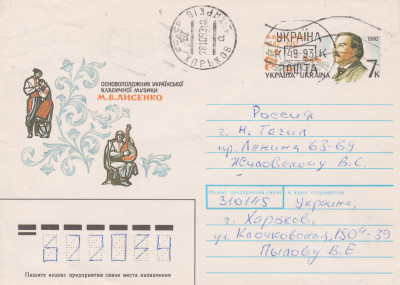 УКРАЇНА
49-93
ПОШТА
УКРАЇНА UKRAINA
1992
7к
ХАРЬКОВ
ОСНОВОПОЛОЖНИК УКРАЇНСЬКОЇ
КЛАСИЧНОЇ МУЗИКИ
М.В.ЛИСЕНКО
Россия
г. Н. Тагил
пр. Ленина 63-69
Жиловскому В.С.
Индекс предприятия связи и адрес отправителя
310145 Украина,
г. Харьков.
ул. Клочковская, 150а-39
Пылову В.Е.
622034
Пишите индекс предприятия связи места назначения